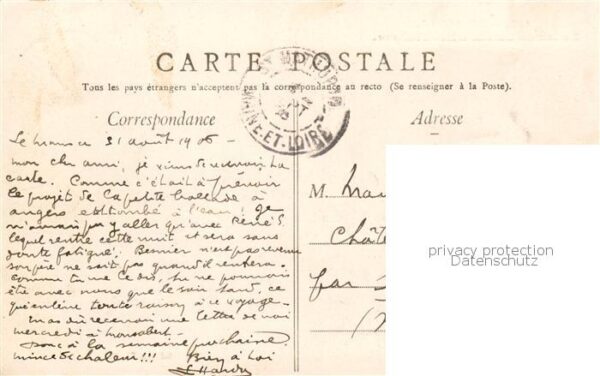 CARTE POSTALE
Tous les pays étrangers n'acceptent pas la correspondance au recto (Se renseigner à la Poste).
Correspondance
Adresse
MAINE-ET-LOIRE
Le mans ce 31 août 1906 -
mon cher ami, je viens de recevoir ta
carte. Comme c'était à prévoir
le projet de la petite ballade à
angers est tombé à l'eau! Je
n'aurais pu y aller qu'avec René S.
lequel rentre cette nuit et sera sans
doute fatigué. Besnier n'est pas revenu
son père ne sait pas quand il rentrera.
Comme tu me le dis, tu ne pourrais
être avec nous que le soir tard, ce
qui enlève toute raison à ce voyage -
tu as dû recevoir une lettre de moi
mercredi à
Donc à la semaine prochaine
mince de chaleur !!! Bien à toi
Hardy
M.
Chât
par
privacy protection
Datenschutz